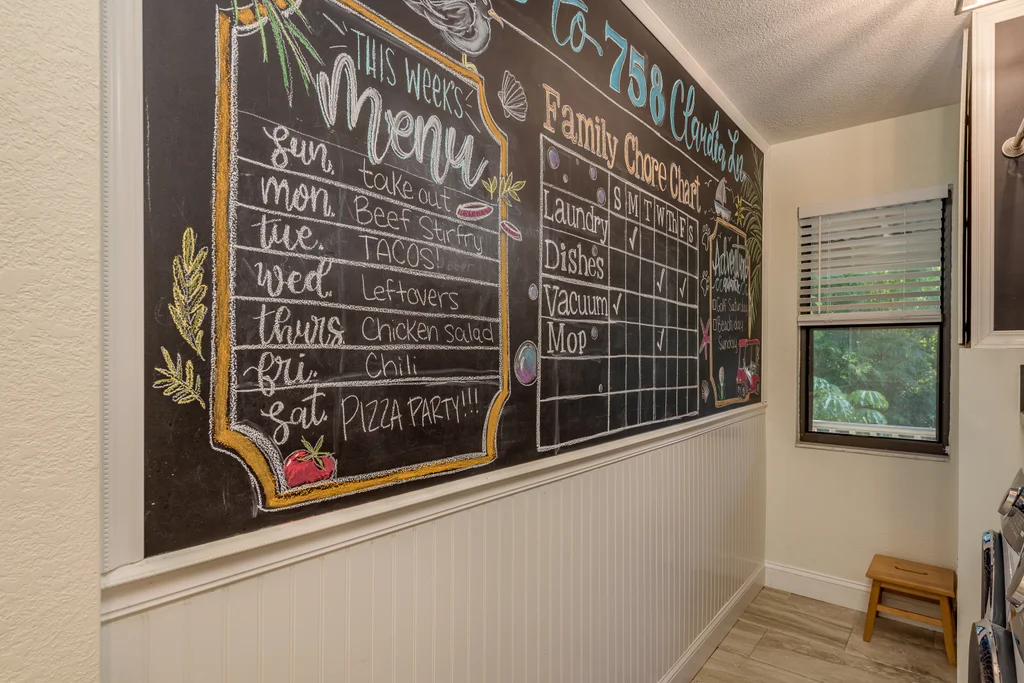 to 758 Claudia Ln
THIS WEEKS
Menu
Sun. take out
mon. Beef Stirfry
tue. TACOS!
wed. Leftovers
thurs. Chicken Salad
fri. Chili
Sat. PIZZA PARTY!!!
Family Chore Chart
S M T W Th F S
Laundry
Dishes
Vacuum
Mop
Adventure
Golf Saturday
Beach day
Sunday